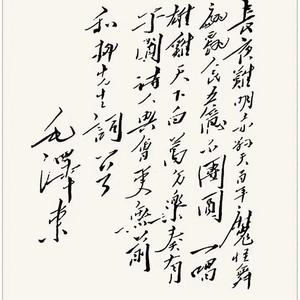 長夜難明赤縣天百年魔怪舞
翩躚人民五億不團圓一唱
雄雞天下白萬方樂奏有
于闐詩人興會更無前
和柳先生詞
毛澤東